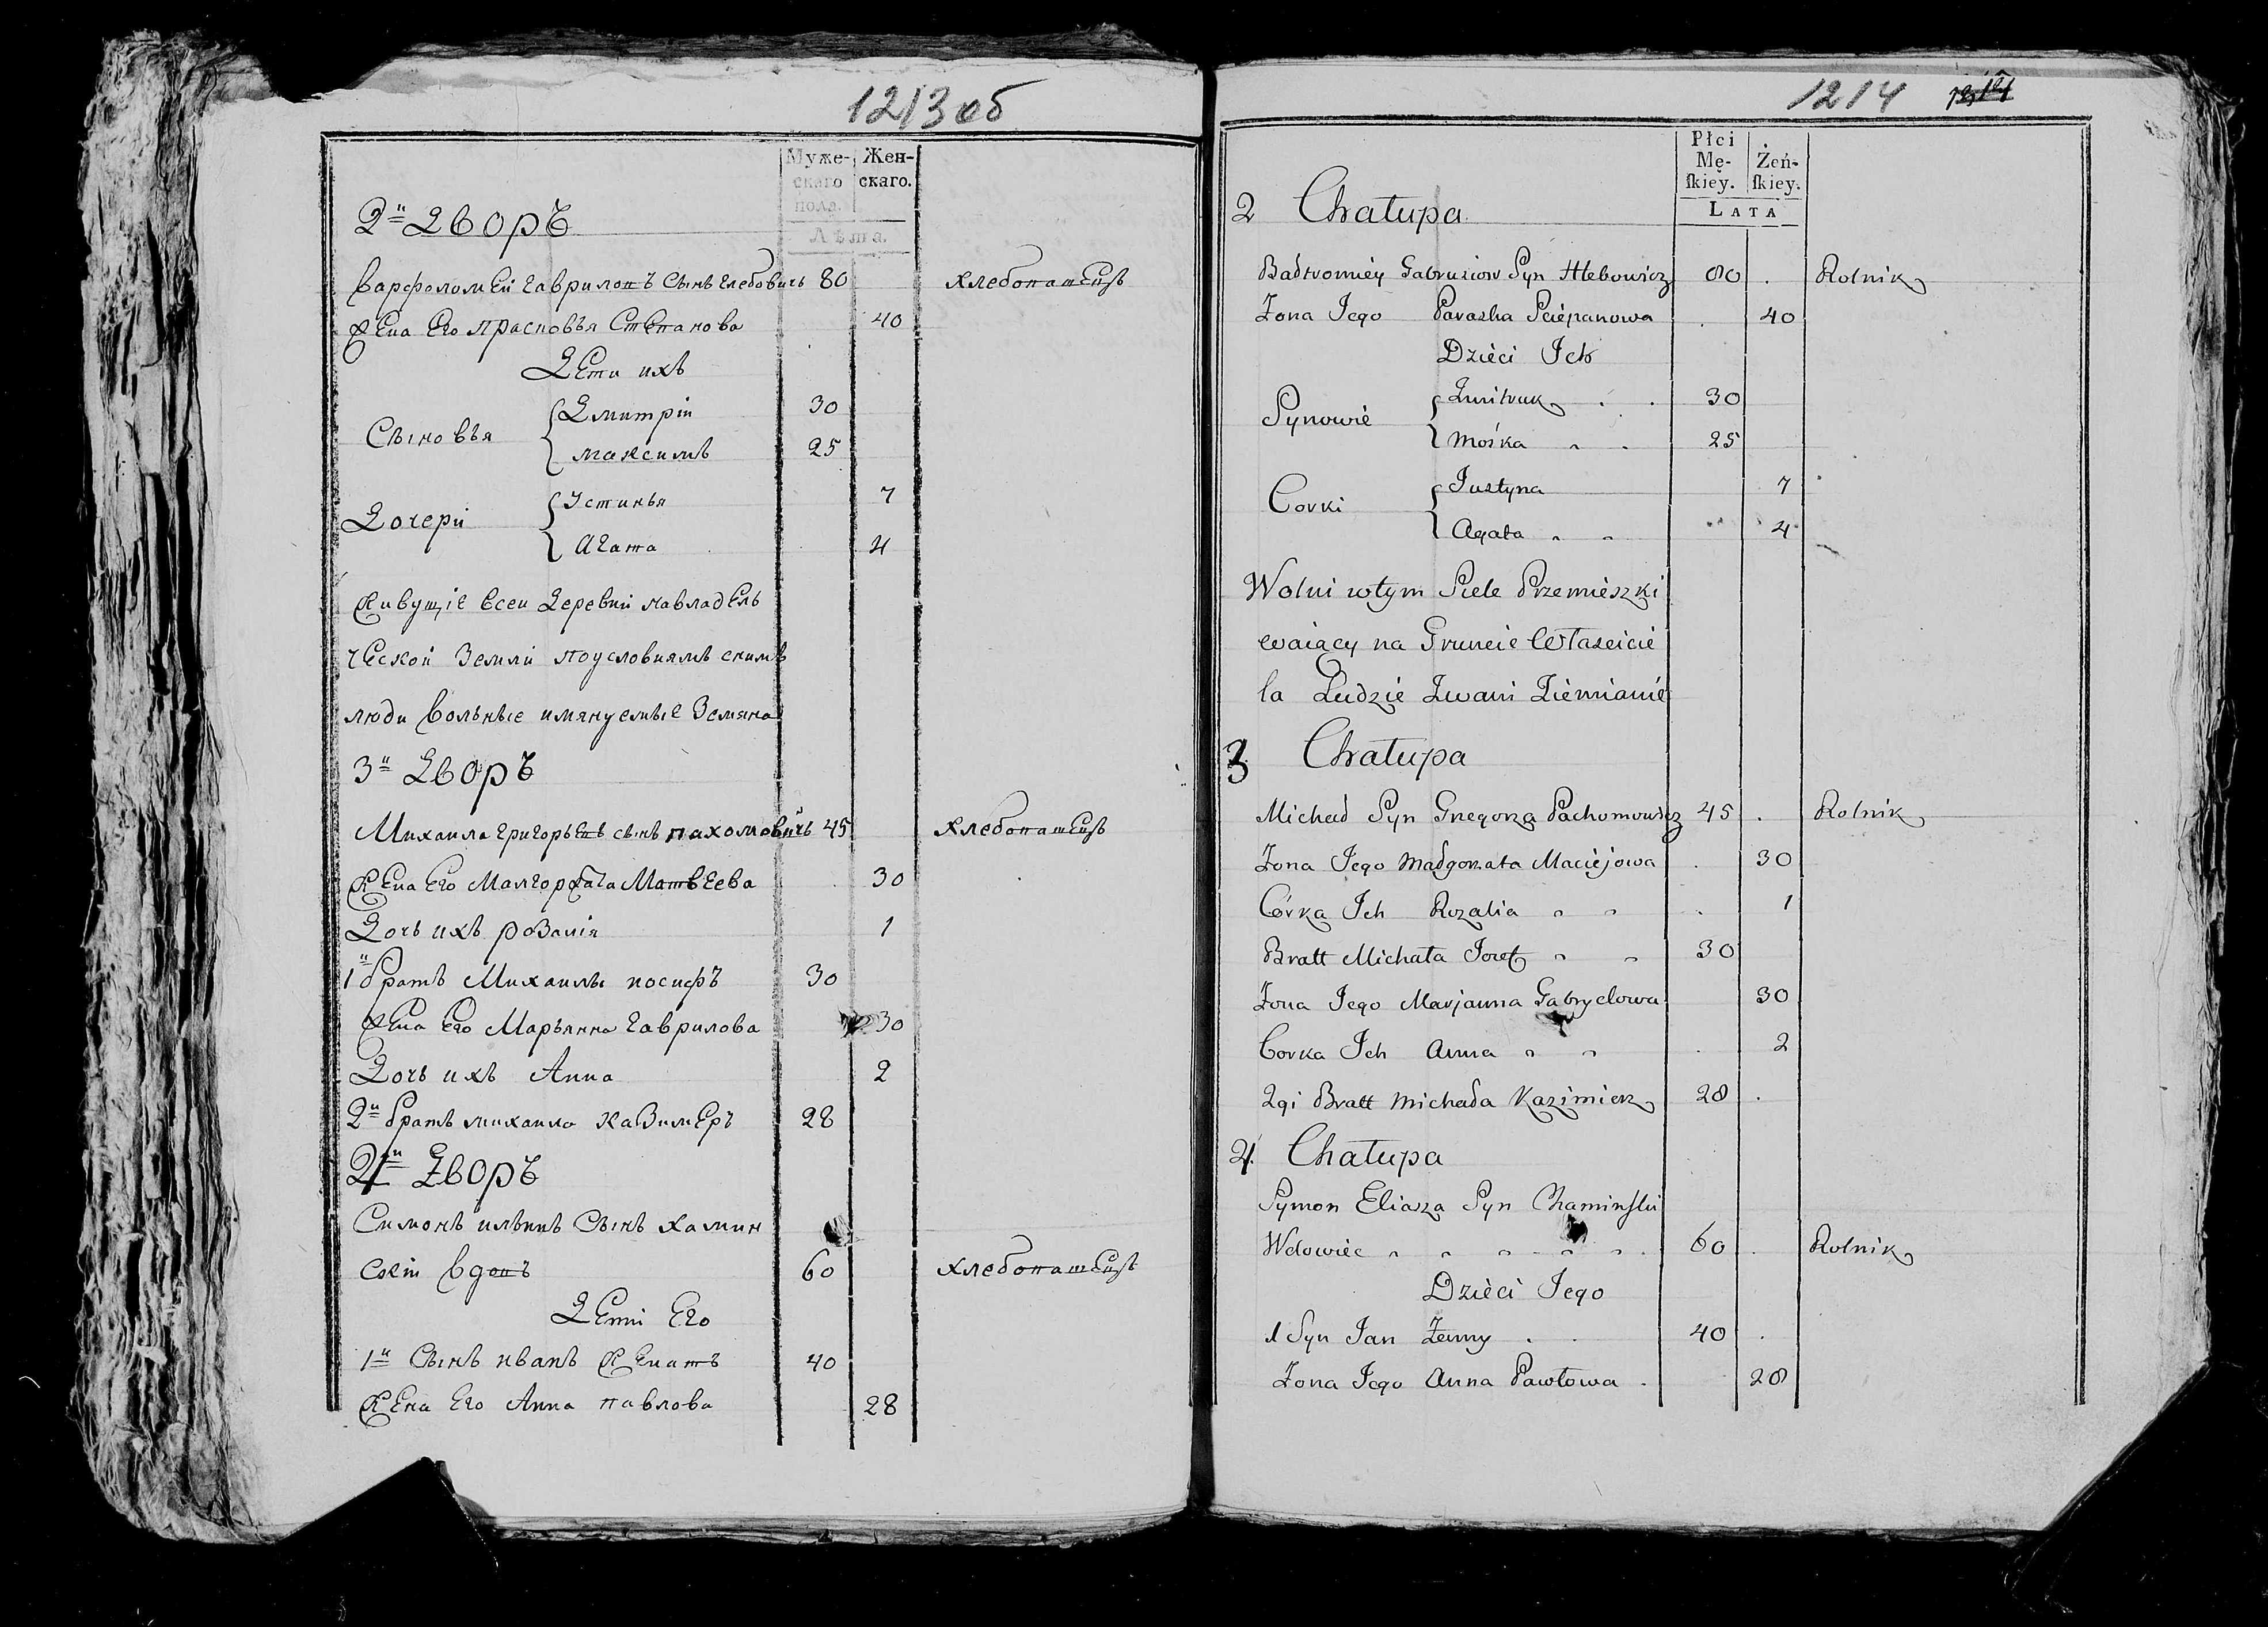 1213 об
Муже-
скаго
пола.
Жен-
скаго.
Лѣта.
2й Дворъ
Варфоломей Гавриловъ Сынъ Глебовичь 80 хлебопашецъ
Жена Его Прасковья Степанова 40
Дети ихъ
Сыновья
Дмитрій 30
Максимъ 25
Дочери
Устинья 7
Агата 4
Живущіе всеи Деревни навладель
ческой Земли поусловиямъ снимъ
люди Вольные имянуемые Земяна
3й Дворъ
Михаила Григорьевъ сынъ Пахомовичь 45 хлебопашецъ
Жена Его Малгоржата Матвеева 30
Дочь ихъ розалія 1
1й братъ Михаилы иосифъ 30
Жена Его Марьянна Гаврилова 30
Дочь ихъ Анна 2
2й братъ михаила Казимеръ 28
4й Дворъ
Симонъ ильинъ Сынъ Хамин
скій Вдовъ 60 хлебопашецъ
Дети Его
1й Сынъ иванъ Женатъ 40
Жена Его Анна павлова 28
1214
Płci
Mę-
ſkiey.
Żeń-
ſkiey.
LATA
2 Chałupa
Bałtromiéy Gabrusiow Syn Hlebowicz 80 . Rolnik
Zona Jego Paraska Sciépanowa . 40
Dziéci Ich
Synowié
Zmitruk . . 30
Mośka " . 25
Corki
Justyna 7
Agata " " 4
Wolni wtym Siele Przemiészki
waiący na Gruncié Właścicié
la Ludzié Zwani Ziémianié
3 Chałupa
Michał Syn Grzegorza Pachomowicz 45 . Rolnik
Zona Jego Małgorzata Maciéjowa . 30
Córka Ich Rozalia " " . 1
Bratt Michała Jozef " " 30
Zona Jego Marjanna Gabryelowa 30
Corka Ich Anna " " . 2
2gi Bratt Michała Kazimierz 28 .
4 Chałupa
Symon Eliasza Syn Chaminſki
Wdowiéc " " " " " . 60 . Rolnik
Dziéci Jego
1 Syn Jan Żenny . . 40 .
Zona Jego Anna Pawłowa . 28